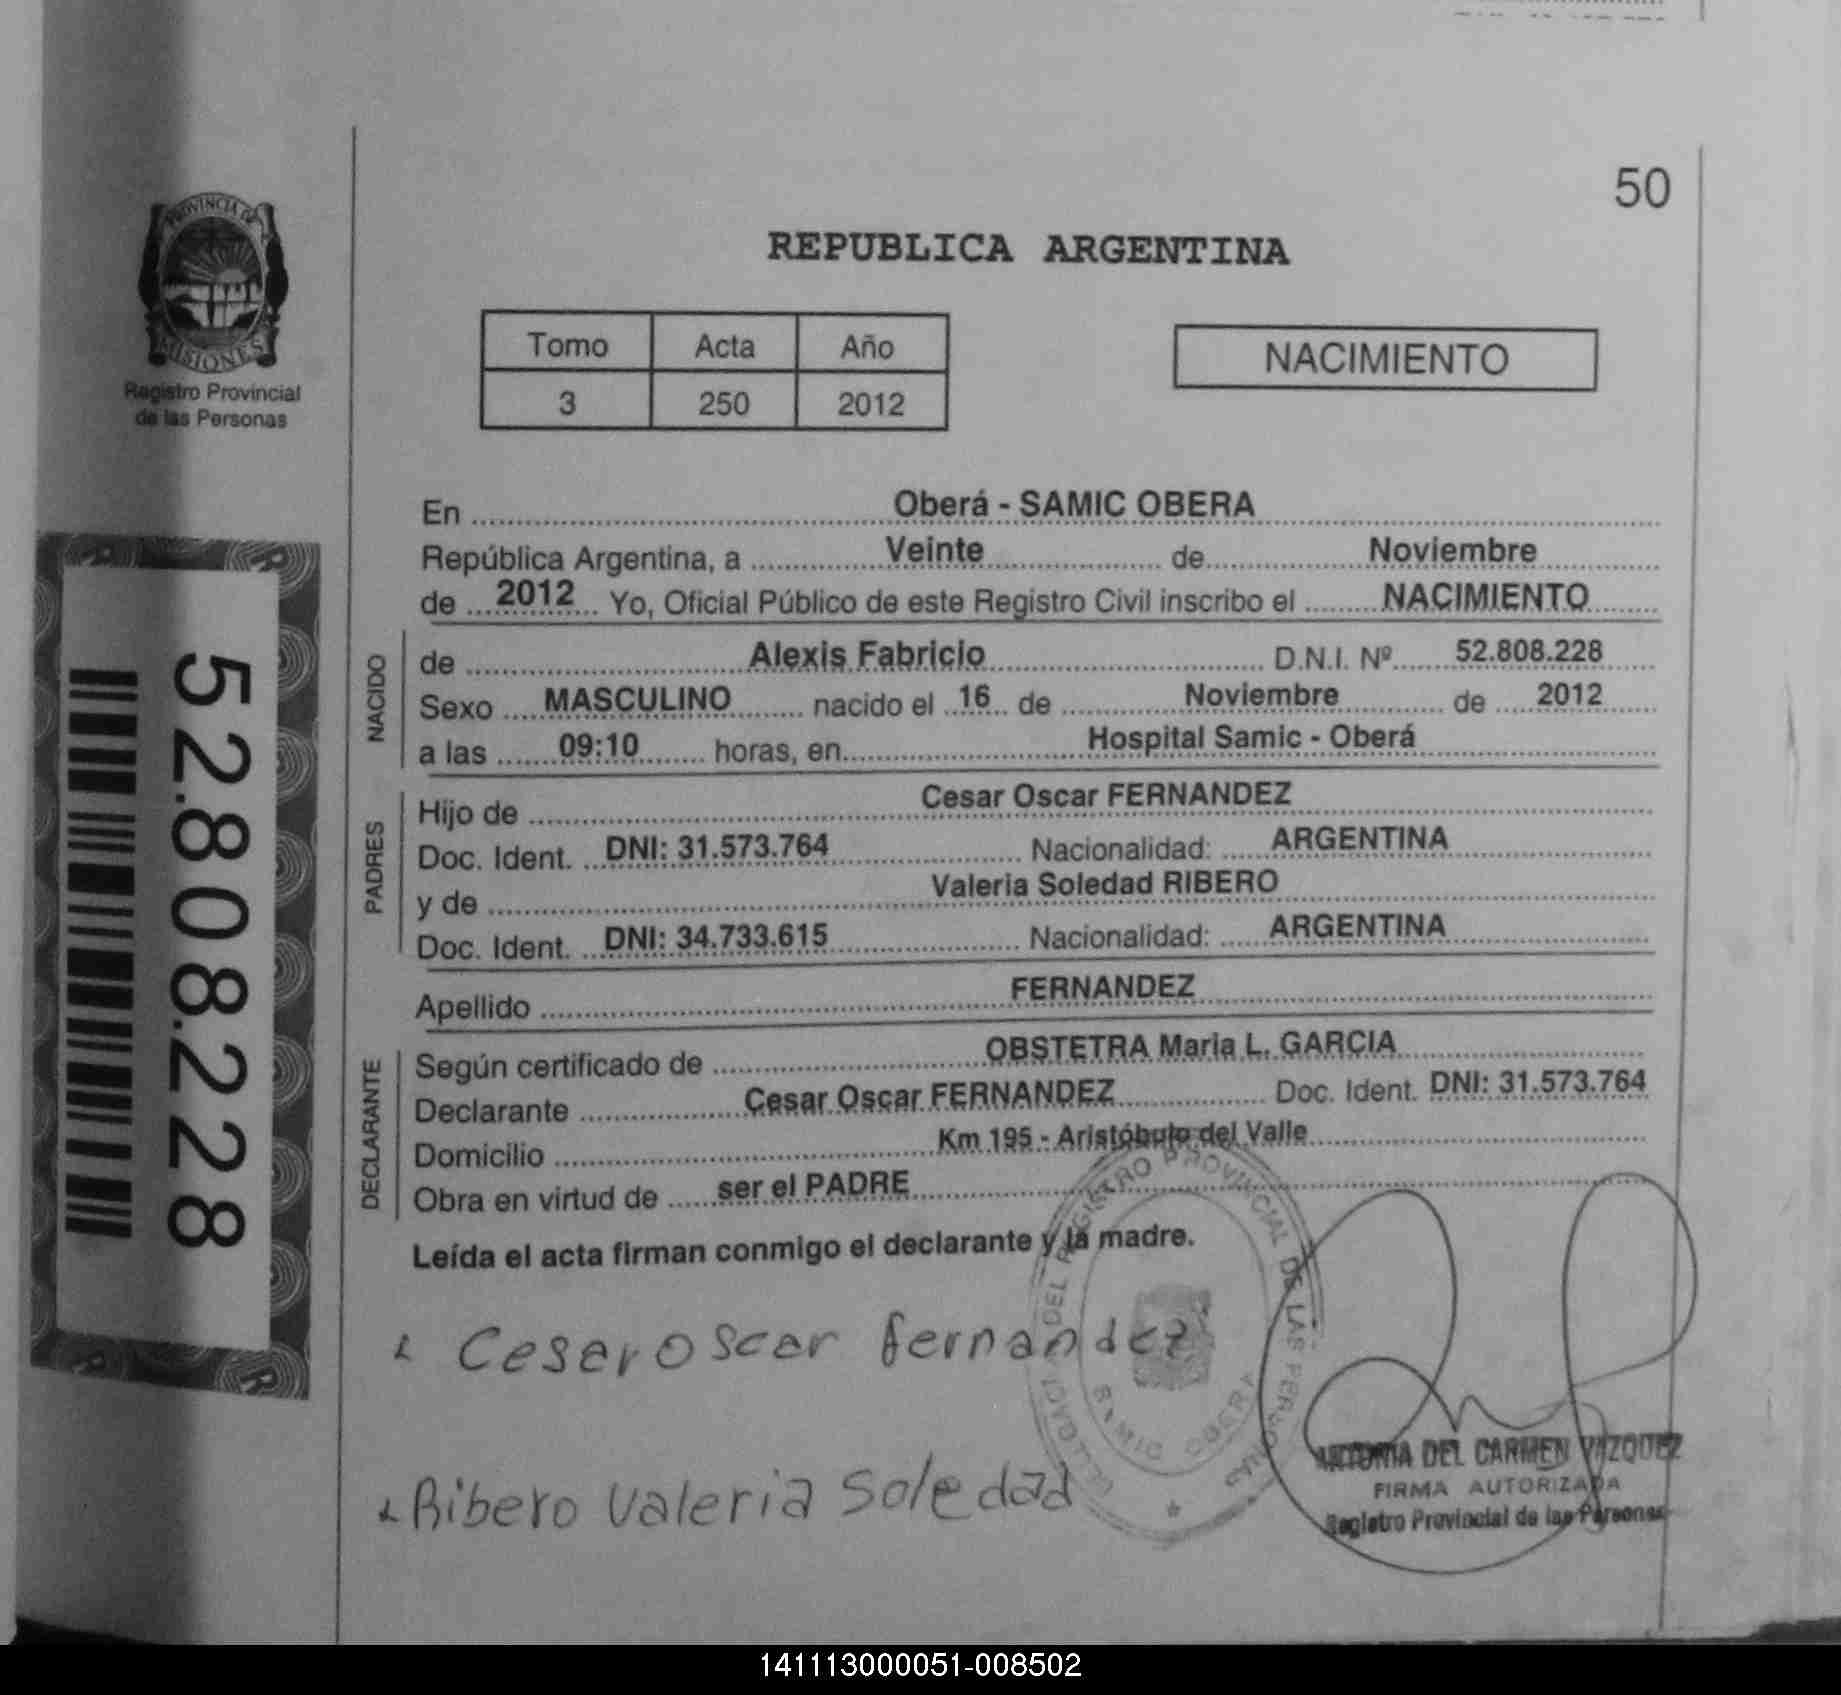 50
PROVINCIA DE
MISIONES
Registro Provincial
de las Personas
REPUBLICA ARGENTINA
Tomo Acta Año
3 250 2012
NACIMIENTO
52.808.228
En Oberá - SAMIC OBERA
República Argentina, a Veinte de Noviembre
de 2012 Yo, Oficial Público de este Registro Civil inscribo el NACIMIENTO
NACIDO
de Alexis Fabricio D.N.I. Nº 52.808.228
Sexo MASCULINO nacido el 16 de Noviembre de 2012
a las 09:10 horas, en Hospital Samic - Oberá
PADRES
Hijo de Cesar Oscar FERNANDEZ
Doc. Ident. DNI: 31.573.764 Nacionalidad: ARGENTINA
y de Valeria Soledad RIBERO
Doc. Ident. DNI: 34.733.615 Nacionalidad: ARGENTINA
Apellido FERNANDEZ
DECLARANTE
Según certificado de OBSTETRA Maria L. GARCIA
Declarante Cesar Oscar FERNANDEZ Doc. Ident. DNI: 31.573.764
Domicilio Km 195 - Aristóbulo del Valle
Obra en virtud de ser el PADRE
Leída el acta firman conmigo el declarante y la madre.
Cesar Oscar fernandez
Ribero Valeria Soledad
DEL REGISTRO PROVINCIAL DE LAS PERSONAS
SAMIC OBERA
ANTONIA DEL CARMEN VAZQUEZ
FIRMA AUTORIZADA
Registro Provincial de las Personas
141113000051-008502